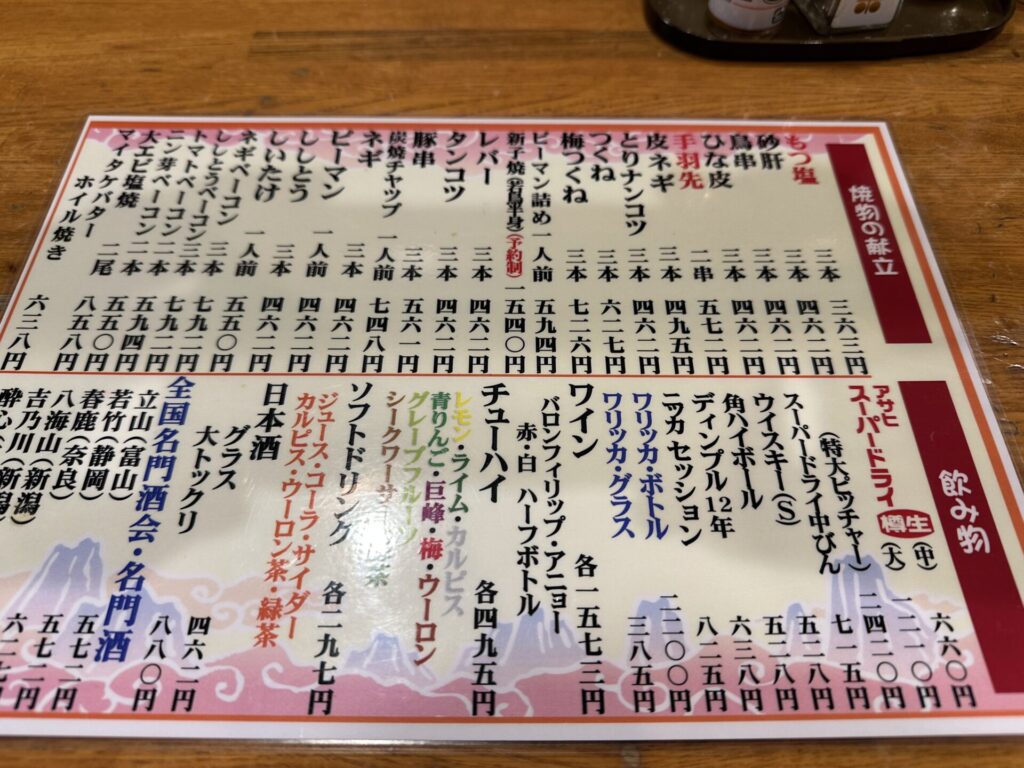 焼物の献立
もつ塩 三本 三六三円
砂肝 三本 四六二円
鳥串 三本 四六二円
ひな皮 三本 四六二円
手羽先 二串 五七二円
皮ネギ 三本 四九五円
とりナンコツ 三本 四六二円
つくね 三本 六二七円
梅つくね 三本 七二六円
ピーマン詰め 一人前 五九四円
新子焼(若鳥半身)(予約制) 一五四〇円
レバー 三本 四六二円
タンコツ 三本 四六二円
豚串 三本 五六一円
炭焼チャップ 一人前 七四八円
ネギ 三本 四六二円
ピーマン 一人前 四六二円
ししとう 三本 四六二円
しいたけ 一人前 五五〇円
ネギベーコン 三本 七九二円
ししとうベーコン 三本 七九二円
トマトベーコン 二本 五九四円
ニン芽ベーコン 二本 五五〇円
大エビ塩焼 二尾 八五八円
マイタケバター
ホイル焼き 六三八円
飲み物
アサヒ
スーパードライ 樽生 (中) 六六〇円
(大) 一一〇〇円
(特大ピッチャー) 二四二〇円
スーパードライ中びん 七一五円
ウイスキー(S) 五二八円
角ハイボール 五二八円
ディンプル12年 六三八円
ニッカ セッション 八二五円
ワリッカ・ボトル 二二〇〇円
ワリッカ・グラス 三八五円
ワイン
バロンフィリップ・アニョー
赤・白 ハーフボトル 各一五七三円
チューハイ 各四九五円
レモン・ライム・カルピス
青りんご・巨峰・梅・ウーロン
グレープフルーツ
シークワーサー 茶
ソフトドリンク 各二九七円
ジュース・コーラ・サイダー
カルピス・ウーロン茶・緑茶
日本酒
グラス 四六二円
大トックリ 八八〇円
全国名門酒会・名門酒
立山(富山)
若竹(静岡)
春鹿(奈良) 五七二円
八海山(新潟)
吉乃川(新潟) 五七二円
酔心 六二七円